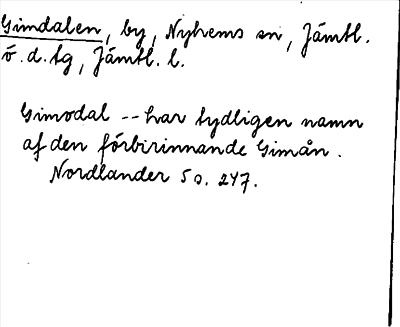 Gimdalen, by, Nyhems sn, Jämtl.
ö. d. tg, Jämtl. l.
Gimodal -- har tydligen namn
af den förbirinnande Gimån.
Nordlander 5 s. 247.